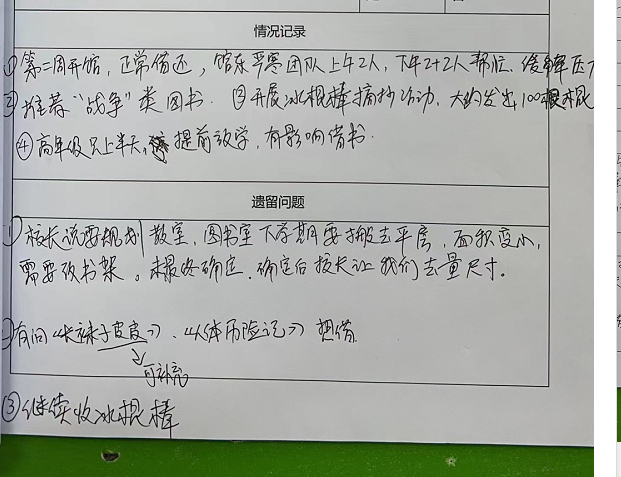 情况记录
①第二周开馆,正常借还,馆东 团队上午2人,下午2+2人帮忙.缓解压
②推荐“战争”类图书.③开展冰棍棒摘抄活动,大约发出100根
④高年级只上半天,提前放学,有影响借书.
遗留问题
①校长说要规划教室,图书室下学期要搬去平层,面积变小,
需要改书架。未最终确定.确定后校长让我们去量尺寸.
有问《长袜子皮皮》、《人体历险记》想借
可补充
③继续收冰棍棒